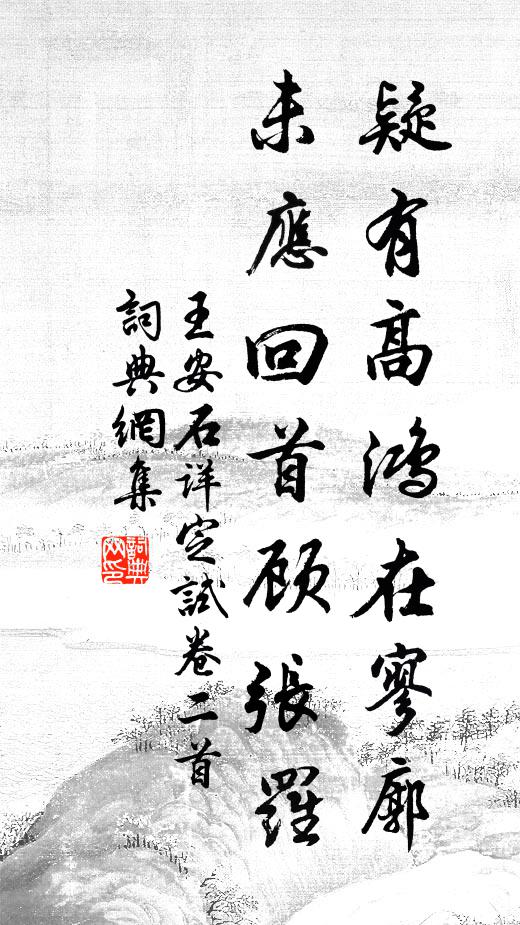 疑有高鴻在寥廓
未應回首顾張羅
王安石详定試卷二首
詞典網集
詞典
网印